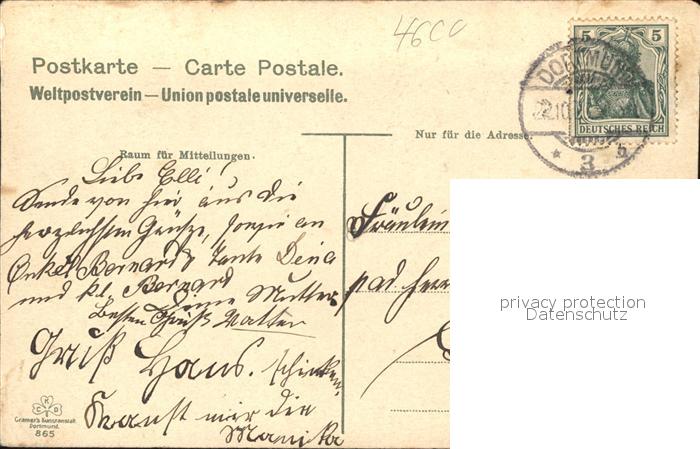 4600
Postkarte — Carte Postale.
Weltpostverein — Union postale universelle.
5 5
DEUTSCHES REICH
DORTMUND
22.10
* 3 b
Nur für die Adresse.
Raum für Mitteilungen.
Liebe Elli!
Sende von hier aus die
herzlichsten Grüße, sowie an
Onkel Bernard Tante Dina
und kl. Bernard
Deine Mutter
Besten Gruß Walter
Gruß Hans.
Kannst mir die
schicken.
Fräulein
pad. Herr
privacy protection
Datenschutz
K
C D
Cramer's Kunstanstalt
Dortmund.
865